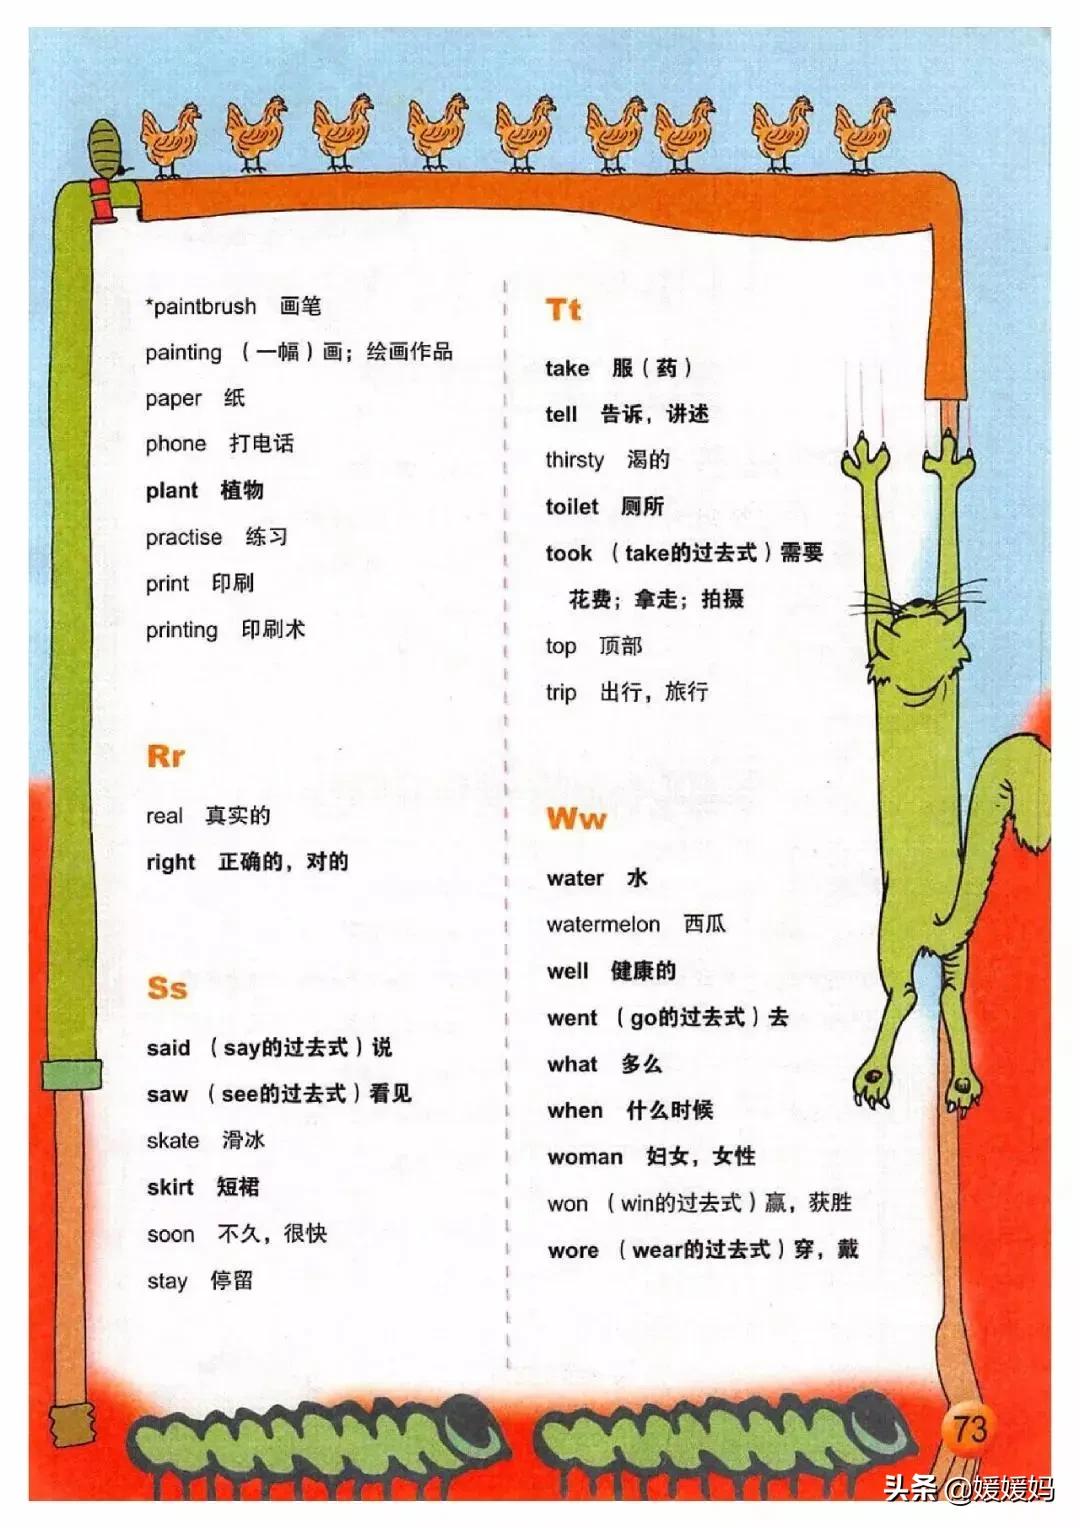 *paintbrush 画笔
painting （一幅）画；绘画作品
paper 纸
phone 打电话
plant 植物
practise 练习
print 印刷
printing 印刷术
Rr
real 真实的
right 正确的，对的
Ss
said （say的过去式）说
saw （see的过去式）看见
skate 滑冰
skirt 短裙
soon 不久，很快
stay 停留
Tt
take 服（药）
tell 告诉，讲述
thirsty 渴的
toilet 厕所
took （take的过去式）需要
花费；拿走；拍摄
top 顶部
trip 出行，旅行
Ww
water 水
watermelon 西瓜
well 健康的
went （go的过去式）去
what 多么
when 什么时候
woman 妇女，女性
won （win的过去式）赢，获胜
wore （wear的过去式）穿，戴
73
头条 @媛媛妈